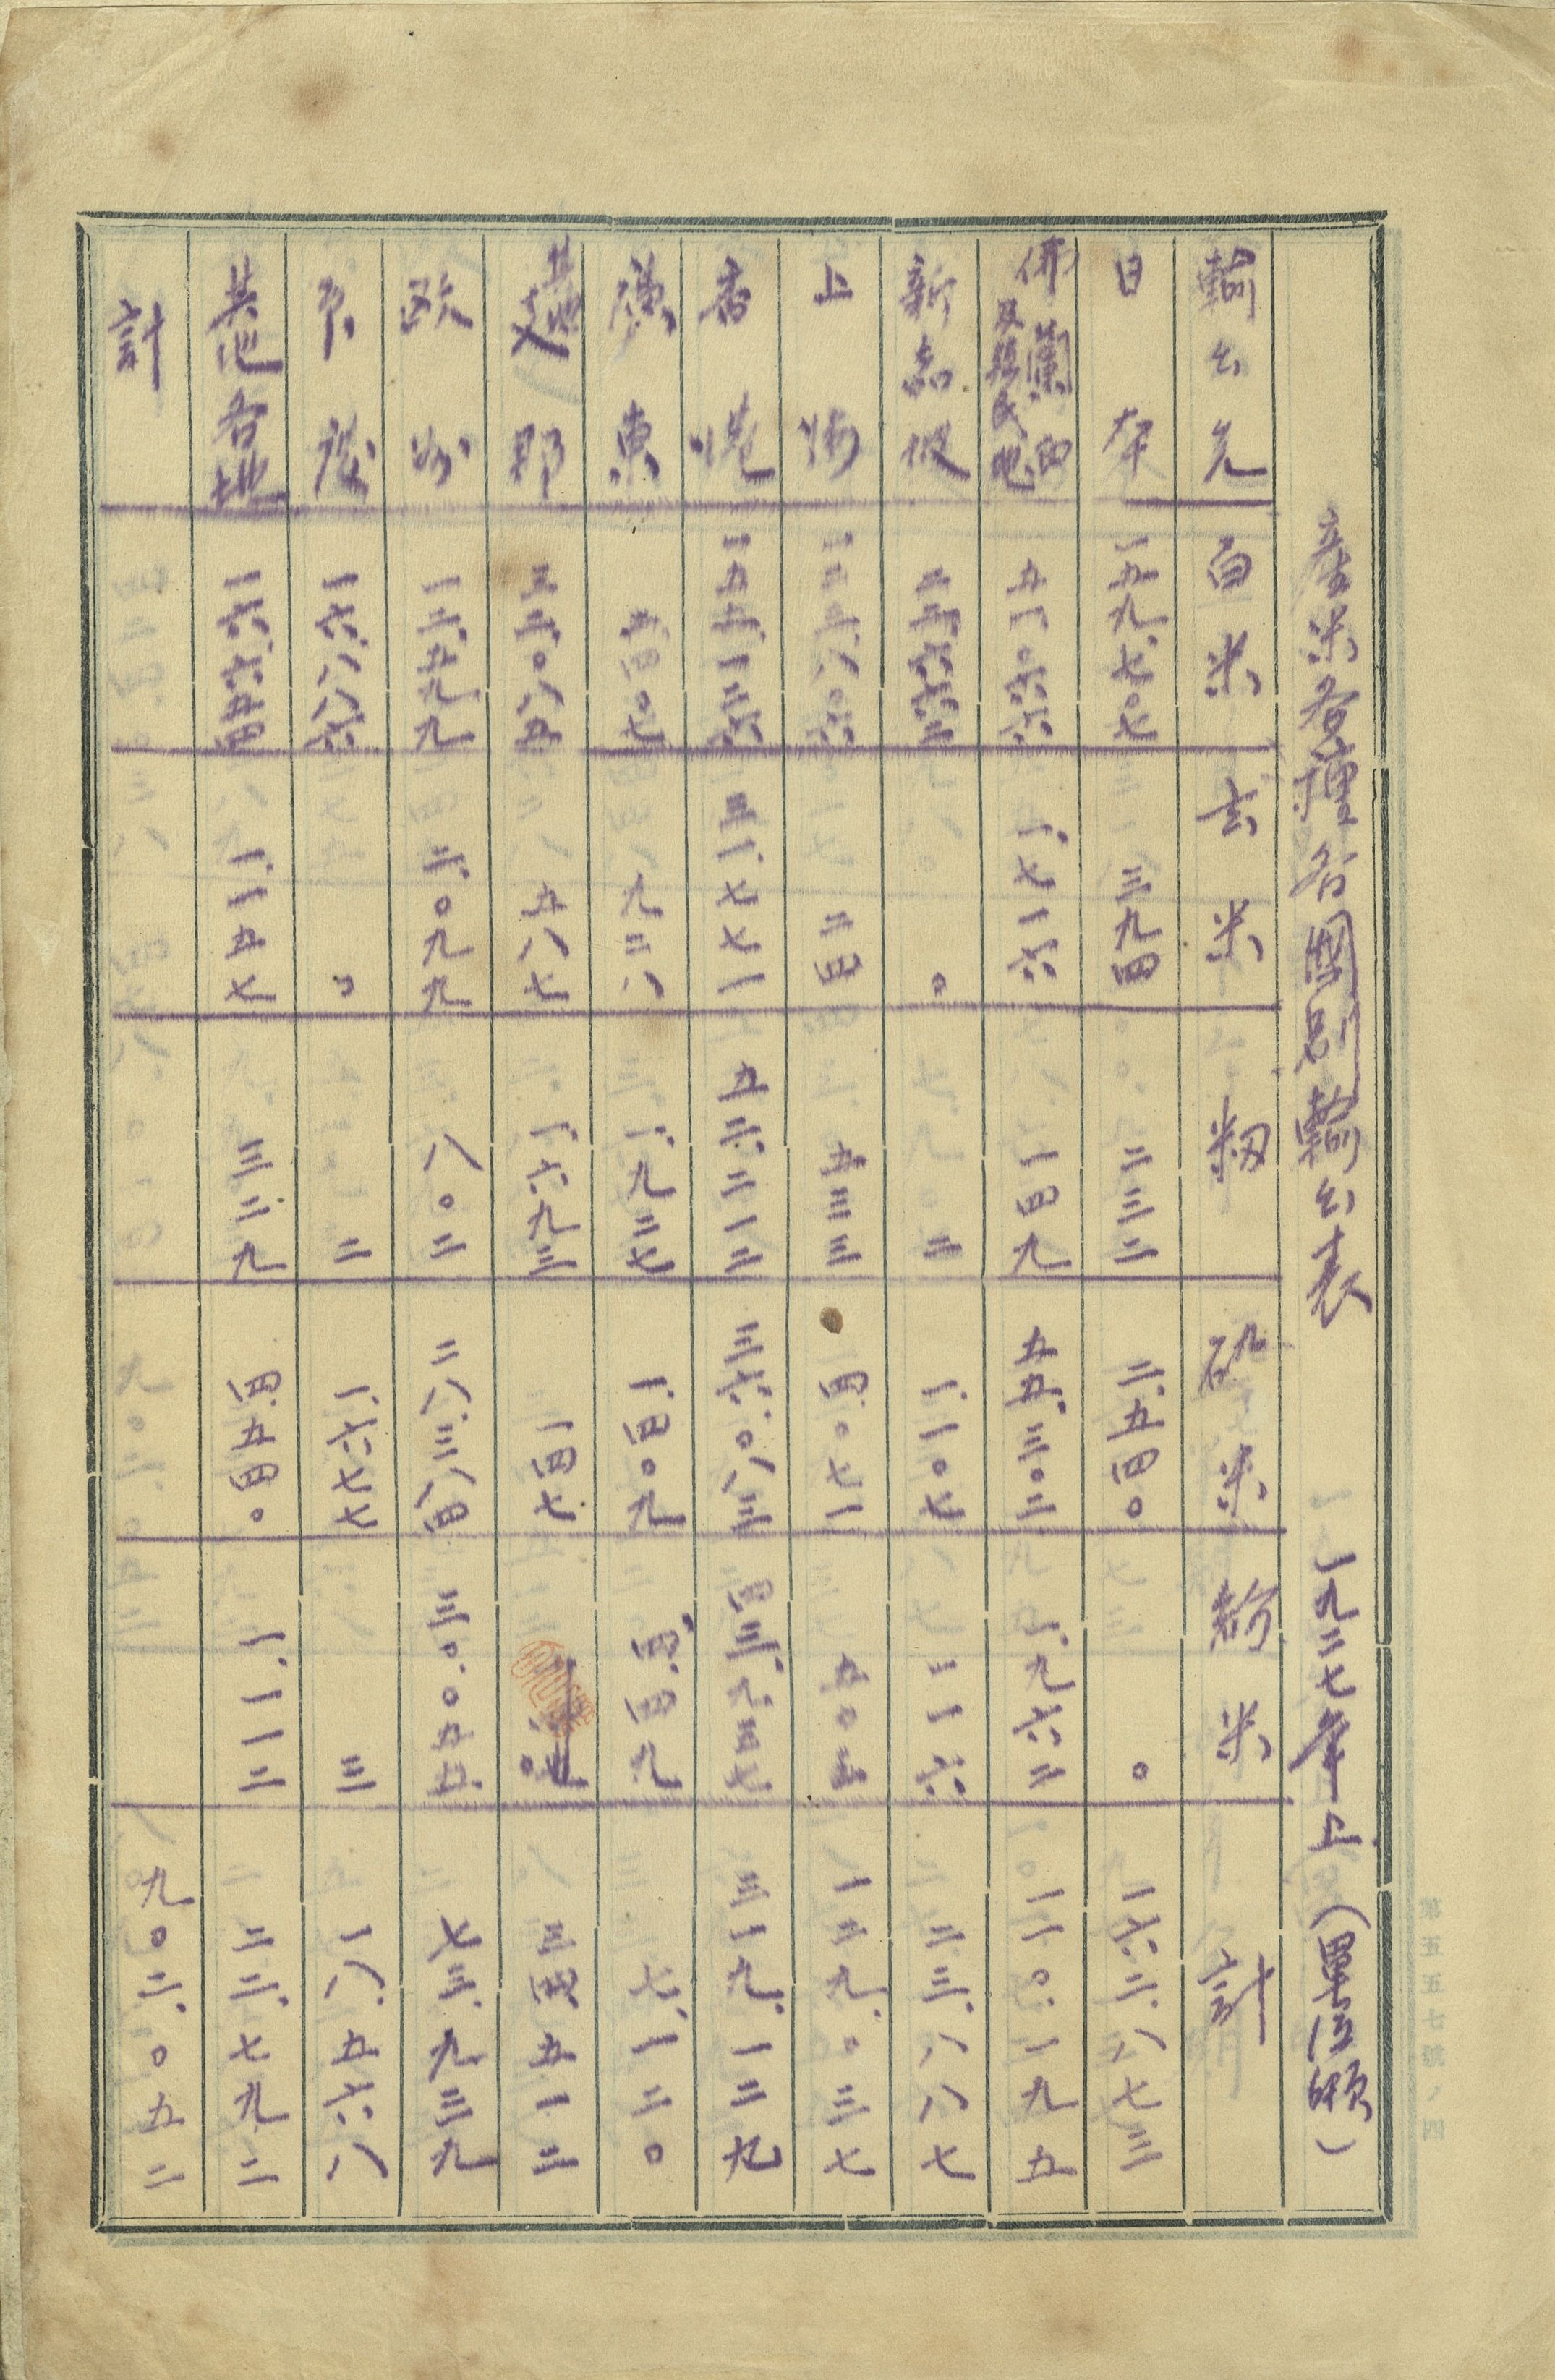 産米各種各國別輸出表 一九二七年上（單位頓）
輸出先 白米 玄米 籾 砕米 粉米 計
日本 一五九、七〇七 三九四 二三二 二、五四〇 〇 一六二、八七三
佛蘭西及殖民地 五一、〇六六 一、七一六 一四九 五五、三〇二 一、九六二 一一〇、一九五
新嘉坡 二二、六六二 〇 二 一、一〇七 一一六 二三、八八七
上海 一二三、八〇六 二四 五三三 四、〇七一 五〇三 一二九、〇三七
香港 一五五、一三六 三一、七七一 五二、二一二 三六、〇八三 四三、九二七 三一九、一二九
廣東 九二八 一、九二七 一、四〇九 七、一二〇
其他支那 三二、〇八五 五八七 一、六九三 一四七 三四、五一二
歐洲 一二、五九九 二、〇九九 八〇二 二八、三八四 三〇、〇五五 七三、九三九
爪哇 一六、八八六 〇 二 一、六七七 三 一八、五六八
其他各地 一六、六五四 一、一五七 三二九 四、五四〇 一、一一二 二二、七九二
計 九〇二、〇五二
第五五七號ノ四